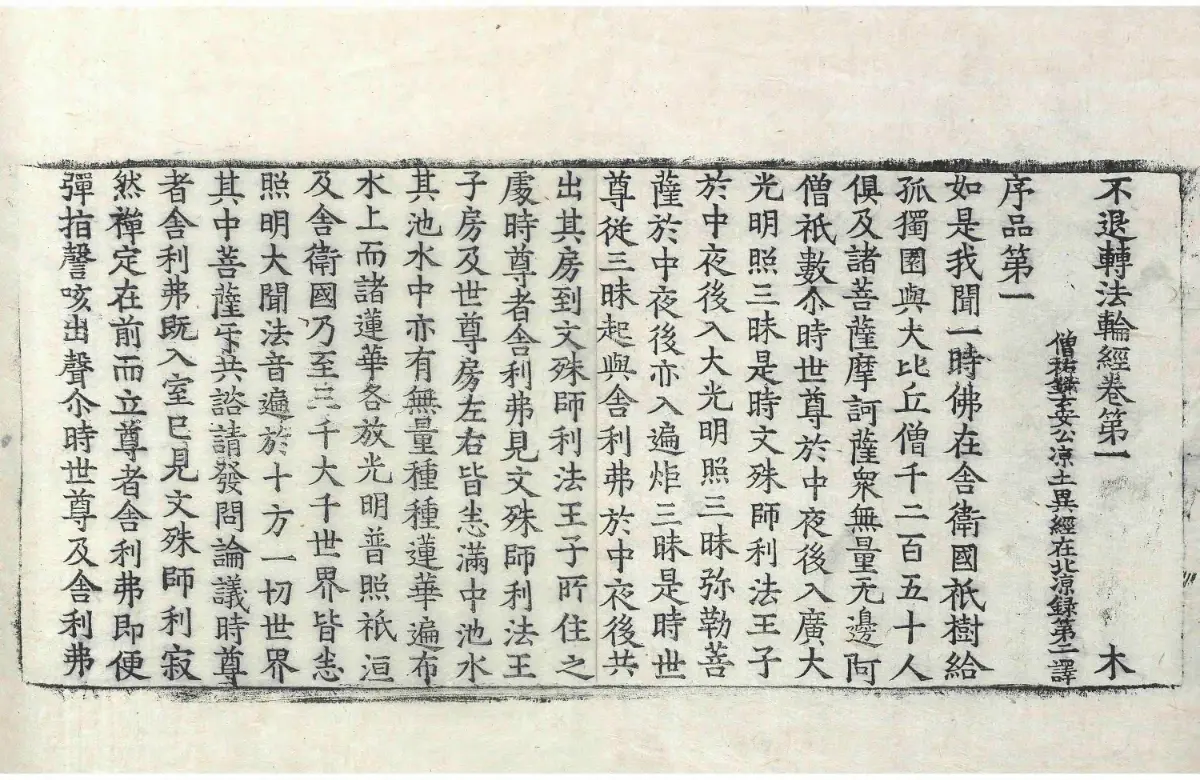 不退轉法輪經卷第一　木
僧祐錄云安公涼土異經在北涼錄第二譯
序品第一
如是我聞一時佛在舍衛國祇樹給
孤獨園與大比丘僧千二百五十人
俱及諸菩薩摩訶薩衆無量无邊阿
僧祇數尒時世尊於中夜後入廣大
光明照三昧是時文殊師利法王子
於中夜後入大光明照三昧弥勒菩
薩於中夜後亦入遍炤三昧是時世
尊從三昧起與舍利弗於中夜後共
出其房到文殊師利法王子所住之
處時尊者舍利弗見文殊師利法王
子房及世尊房左右皆悉滿中池水
其池水中亦有無量種種蓮華遍布
水上而諸蓮華各放光明普照祇洹
及舍衛國乃至三千大千世界皆悉
照明大聞法音遍於十方一切世界
其中菩薩㸦共諮請發問論議時尊
者舍利弗既入室已見文殊師利寂
然禪定在前而立尊者舍利弗即便
彈指謦咳出聲尒時世尊及舍利弗